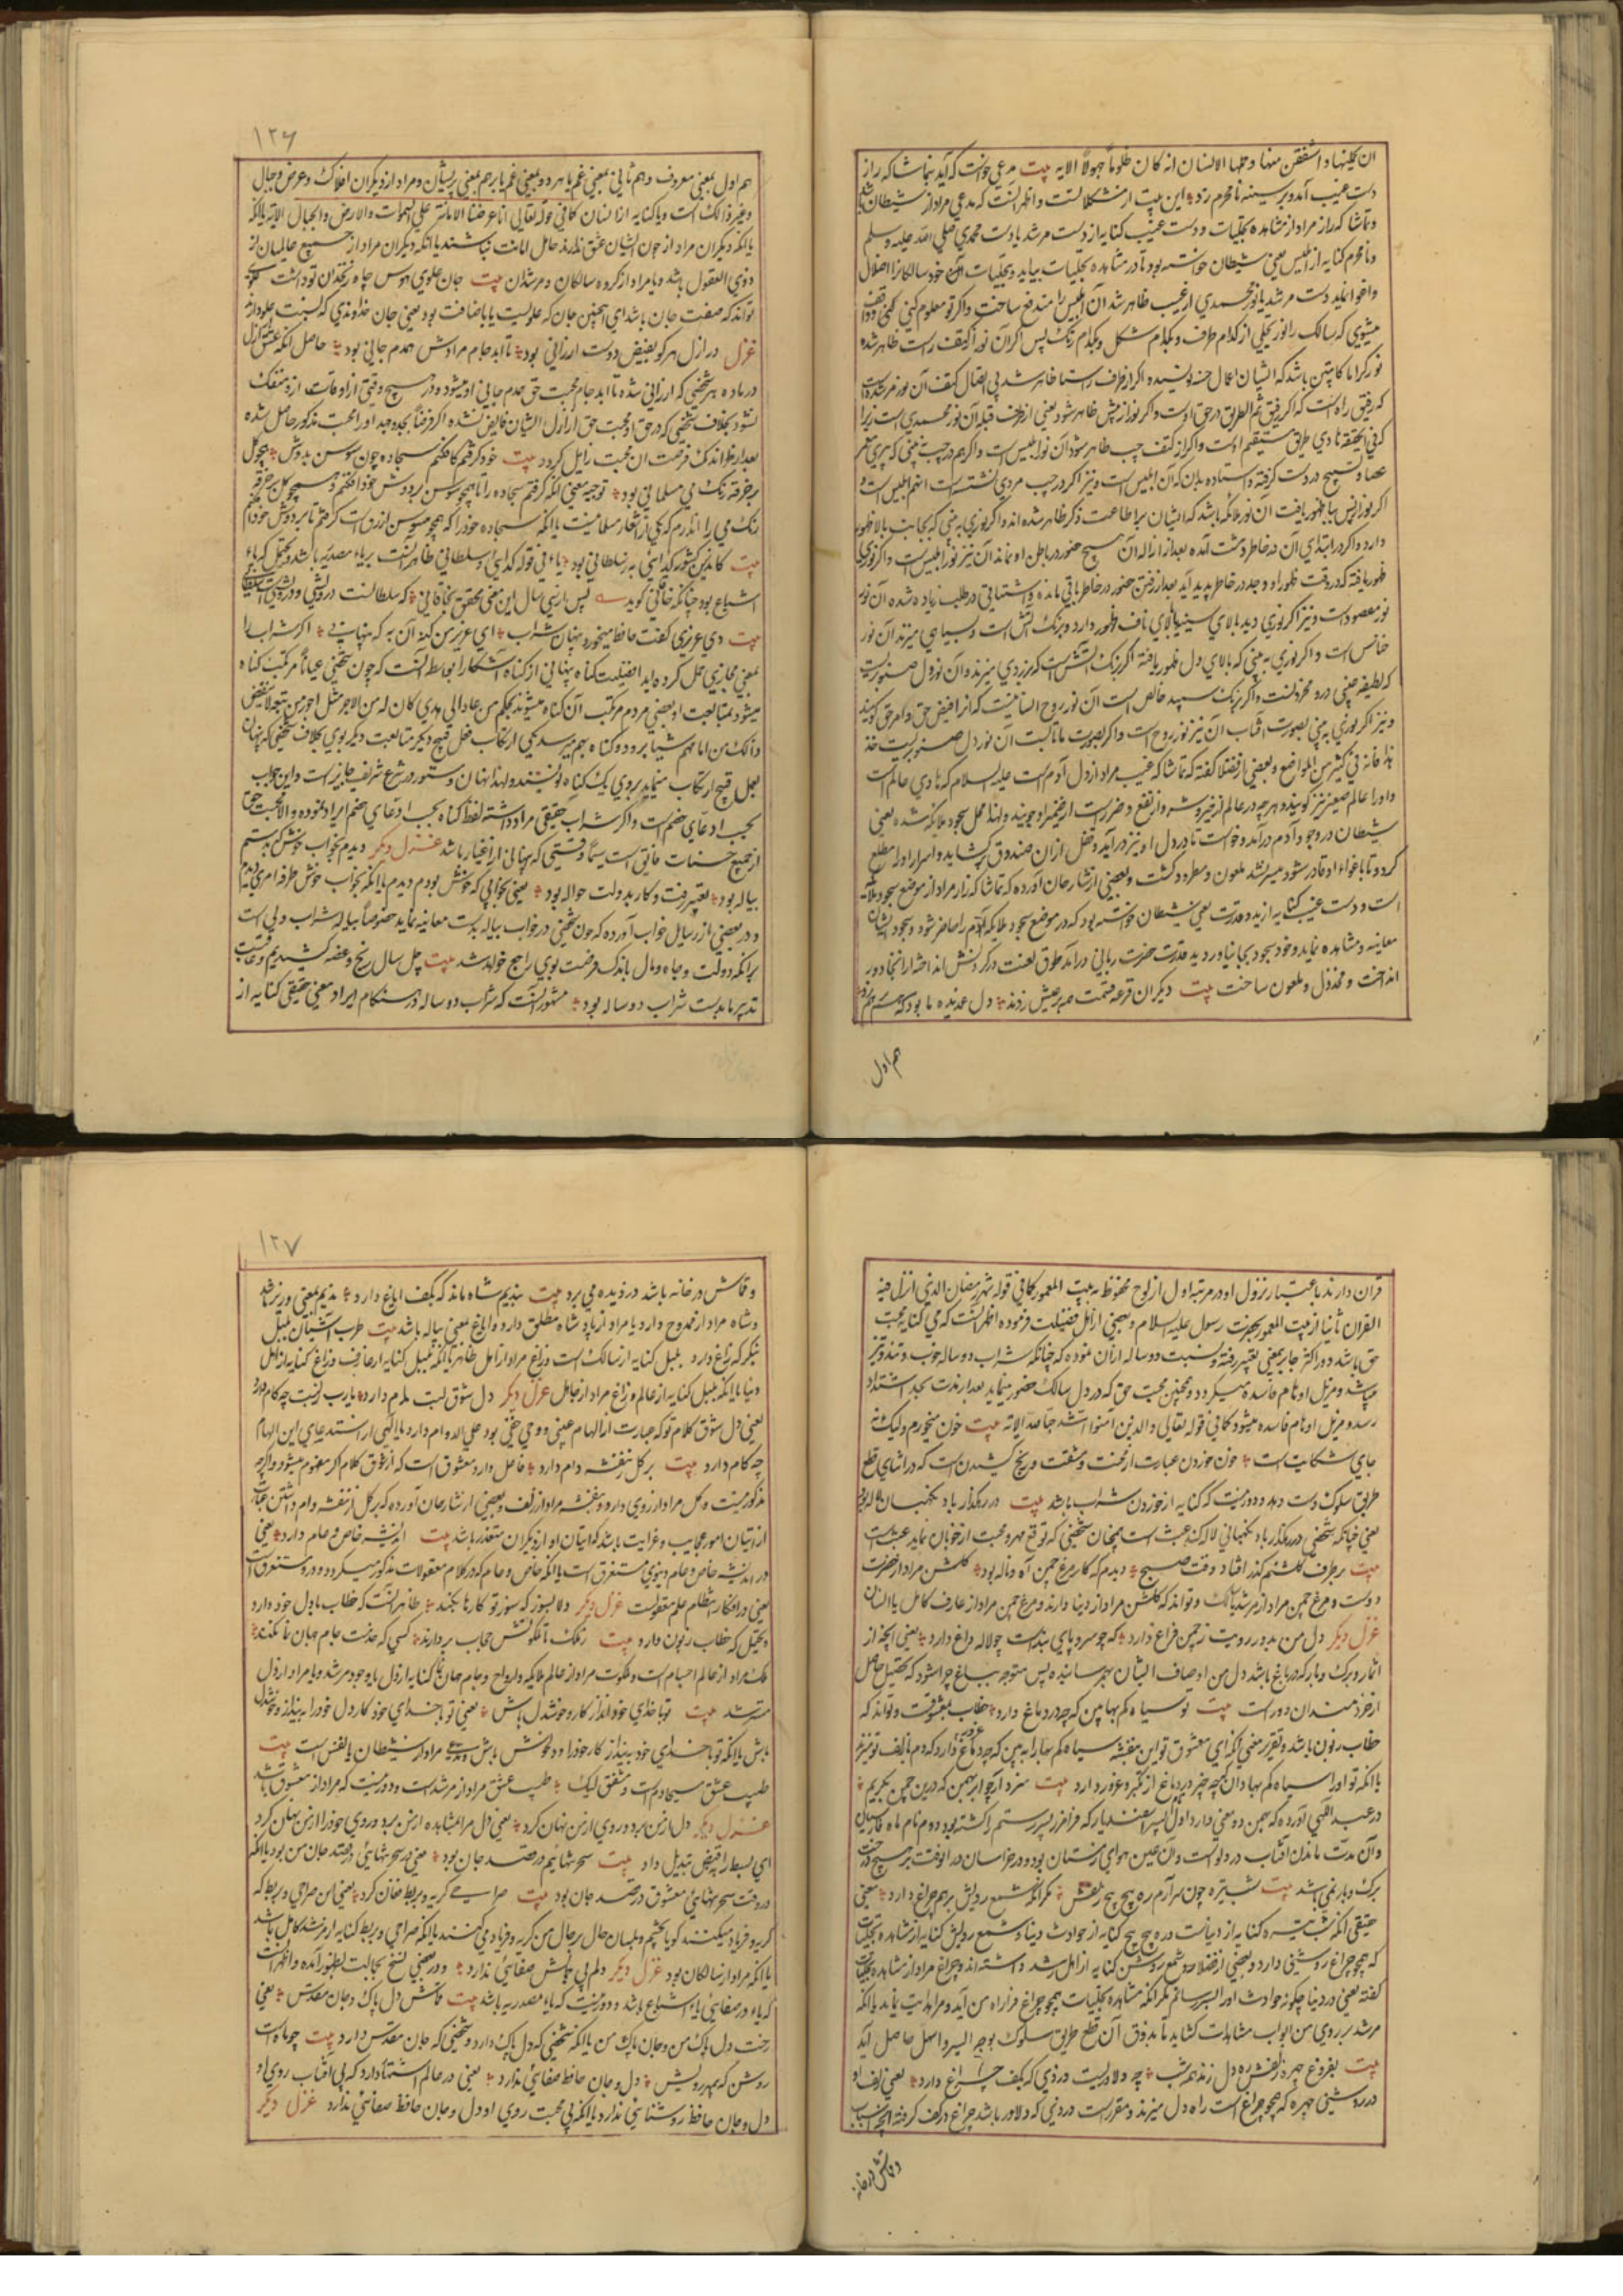 ان یحملنها و اشفقن منها و حملها الانسان انه کان ظلوماً جهولاً الایه بیت مدعی خواست که آید بتماشاکه راز
دست غیب آمد و بر سینه نامحرم زد این بیت از مشکلاتست و اظهر آنست که مدعی مراد از شیطان باشد
و تماشاکه راز مراد از مشاهده تجلیات و دست غیب کنایه از دست مرشد یا دست محمدی صلی الله علیه و سلم
و نامحرم کنایه از ابلیس یعنی شیطان خواسته بود تا در مشاهده تجلیات بیاید و تجلیات
دست مرشد یا نور محمدی از غیب ظاهر شد آن ابلیس را مندفع ساخت و اگر تو معلوم کنی
میشوی که سالک را نور تجلی از کدام طرف و بکدام شکل و بکدام رنگ پس اگر آن نور از کتف راست ظاهر شده
نور کراما کاتبین باشد که ایشان اعمال حسنه نویسنده اگر از طرف راست ظاهر شد بی اتصال کتف آن نور مرشد است
که رفیق راه است که الرفیق ثم الطریق در حق اوست و اگر نور از پیش ظاهر شود یعنی از طرف قبله آن نور محمدی است زیرا
که فی الحقیقه هادی طریق مستقیم اوست و اگر از کتف چپ ظاهر شود آن نور ابلیس است و اگر هم در چپ بینی که پیری
عصا و تسبیح در دست گرفته و استاده بدان که آن ابلیس است و نیز اگر در چپ مردی نشسته است آنهم ابلیس است و
اگر نور از پس ظهور یافت آن نور ملائکه باشد که ایشان برا طاعت ذکر ظاهر شده اند و اگر نوری به بینی که بجانب بالا ظهور
دارد و اگر در ابتدای آن در خاطر دهشت آمده بعد از ازاله آن هیچ حضور در باطن او نماند آن نیز نور ابلیس است و اگر نوری
ظهور یافته که در وقت ظهور او وجد در خاطر پدید آید بعد از رفتن حضور در خاطر باقی مانده و اشتیاقی در طلب زیاده شده آن نور
نور مقصود است و نیز اگر نوری دید بالای سینه یا بالای ناف ظهور دارد و برنگ آتش است و بسیاهی میزند آن نور
خناس است و اگر نوری به بینی که بالای دل ظهور یافته اگر برنگ آتش است که بزردی میزند و آن نور دل صنوبریست
که لطیفه غیبی درو مخزنست و اگر برنگ سپید خالص است آن نور روح انسانیست که از فیض حق و امر حق گویند
و نیز اگر نوری به بینی بصورت آفتاب آن نیز نور روح است و اگر بصورت ماهتابست آن نور دل صنوبریست خذ
هذا فانه فی کثیر من المواضع و بعضی از فضلا گفته که تماشاکه غیب مراد از دل آدم است علیه السلام که هادی عالم است
و او را عالم صغیر نیز گویند و هرچه در عالم از خیر و شر و از نفع و ضرر است از ضمیر او جویند و لهذا محل سجود ملائکه شده یعنی
شیطان در وجود آدم درآمد و خواست تا در دل او نیز درآید و قفل از آن صندوق بگشاید و اسرار او را مطلع
گردد تا باغواء او قادر شود میسر نشد ملعون و مطرود گشت و بعضی از شارحان آورده که تماشاکه راز مراد از موضع سجود ملائکه
است و دست غیب کنایه از ید قدرت یعنی شیطان خواسته بود که در موضع سجود ملائکه آدم را حاضر شود و سجود ایشان
معاینه و مشاهده نماید و خود سجود بجا نیاورد ید قدرت حضرت ربانی درآمد طوق لعنت در گردنش انداخته از آنجا دور
انداخت و مخذول و ملعون ساخت بیت دیگران قرعه قسمت همه بر عیش زدند دل غمدیده ما بود که هم بر غم زد
هم اول
۱۲۶
هم اول بمعنی معروف و هم ثانی بمعنی غم یا هر دو بمعنی غم یا بر هم بمعنی پریشان و مراد از دیگران افلاک و عرض و جبال
و غیر ذالک است و یا کنایه از انسان کما فی قوله تعالی انا عرضنا الامانة علی السموات والارض والجبال الایه یا آنکه
یا آنکه دیگران مراد از چون ایشان عشق ندارند حامل امانت نباشند یا آنکه دیگران مراد از جمیع عالمیان از
ذوی العقول باشد و یا مراد از گروه سالکان و مرشدان بیت جان علوی هوس چاه زنخدان تو داشت
تواند که صفت جان باشد ای همچنین جان که علویست یا باضافت بود یعنی جان خداوندی که نسبت علو دارد
غزل در ازل هر کو بفیض دوست ارزانی بود تا ابد جام مرادش همدم جانی بود حاصل آنکه
در ماده هر شخصی که ارزانی شده تا ابد جام محبت حق همدم جانی او میشود و در هیچ وقتی از اوقات ازو منفک
نشود بخلاف شخصی که در حق او محبت حق از ازل ایشان فائض نشده اگر فرضاً بجد و جهد او را محبت مذکور حاصل شده
بعد از اندک فرصت آن محبت زایل گردد بیت خود گرفتم کافکنم سجاده چون سوسن بدوش همچو گل
بر خرقه رنگ می مسلمانی بود توجیه معنی آنکه گرفتم سجاده را تا همچو سوسن بر دوش خود افکنم و همچو گل بر خرقه
رنگ می را اندازم که یکی از شعار مسلمانیست یا آنکه سجاده خود را که همچو سوسن ازرق است گرفتم تا بر دوش خود اندازم
بیت کاندرین کشور گدایی به ز سلطانی بود یاء فی قوله گدایی و سلطانی ظاهر آنست بر یاء مصدریه باشد و محتمل که یاء
اشباع بود چنانکه خاقانی گوید پس از سی سال این معنی محقق شد بخاقانی که سلطانیست درویشی و درویشیست سلطانی
بیت دی عزیزی گفت حافظ میخورد پنهان شراب ای عزیز من گنه آن به که پنهانی اگر شراب را
بمعنی مجازی حمل کرده اید افضلیت گناه پنهانی از گناه آشکارا بواسطه آنست که چون شخصی عیاناً مرتکب گناه
میشود بمتابعت او بعضی مردم مرتکب آن گناه میشوند
ذالک من اثامهم شیئا
بفعل قبیح ارتکاب نماید بر وی یک گناه نویسند و لهذا نهان و مستور در شرع شریف جایز است و این جواب
بحسب ادعای خصم است و اگر شراب حقیقی مراد داشته لفظ گناه بحسب ادعای خصم ایراد نموده و الا محبت حق
از جمیع حسنات فایق است سیما وقتی که پنهانی از اغیار باشد غزل دیگر دیدم بخواب خوش که بدستم
پیاله بود تعبیر رفت و کار بدولت حواله بود یعنی بخوابی که خوش بودم دیدم یا آنکه بخواب خوش طرفه امری دیدم
و در بعضی از رسایل خواب آورده که چون شخصی در خواب پیاله بدست معاینه نماید خصوصاً پیاله شراب دلی است
بر آنکه دولت و جاه و مال باندک فرصت بوی راجع خواهد شد بیت چل سال رنج و غصه کشیدیم و عاقبت
تدبیر ما بدست شراب دو ساله بود مشهور آنست که شراب دو ساله در هنگام ایراد معنی حقیقی کنایه از
قرآن دارند باعتبار نزول او در مرتبه اول از لوح محفوظ به بیت المعمور کما فی قوله شهر رمضان الذی انزل فیه
القرآن ثانیاً از بیت المعمور بحضرت رسول علیه السلام و بعضی از اهل فضیلت فرموده اظهر آنست که می کنایه از محبت
حق باشد و در اکثر جا بر همین معنی تعبیر رفته و نسبت دو ساله از آن نموده که چنانکه شراب دو ساله خوب و تند و تیز
میباشد و مزیل اوهام فاسده میگردد و همچنین محبت حق که در دل سالک حضور مینماید بعد از مدت بحد اشتداد
رسد و مزیل اوهام فاسده میشود کما فی قوله تعالی والذین آمنوا اشد حبا لله الایه بیت خون میخورم ولیک نه
جای شکایت است خون خوردن عبارت از محنت و مشقت و رنج کشیدن است که در اثنای قطع
طریق سلوک دست دهد و دور نیست که کنایه از خوردن شراب باشد بیت در رهگذار باد نگهبان لاله بود
یعنی چنانکه شخصی در رهگذار باد نگهبانی لاله کند عبث است همچنان شخصی که توقع مهر و محبت از خوبان نماید عبث است
بیت بر طرف گلشنم گذر افتاد وقت صبح دیدم که کار مرغ چمن آه و ناله بود گلشن مراد از حضرت
دوست و مرغ چمن مراد از مرشد یا سالک و تواند که گلشن مراد از دنیا دارند و مرغ چمن مراد از عارف کامل یا انسان
غزل دیگر دل من بدور رویت ز چمن فراغ دارد که چو سرو پای بندست چو لاله داغ دارد یعنی آنچه از
اثمار و برگ و بار که در باغ باشد دل من از اوصاف ایشان بهره رسانیده پس متوجه بباغ چرا شود که تحصیل حاصل
از خردمندان دور است بیت تو سیاه کم بها بین که چه در دماغ دارد خطاب بمعشوقست و تواند که
خطاب باشد و تقریر معنی آنکه ای معشوق تو این بنفشه سیاه کم بها را به بین که چه دماغ دارد که دم با زلف تو میزند
یا آنکه تو او را سیاه کم بها دان که چه چیز در دماغ از تکبر و غرور دارد بیت سزد ار چو ابر بهمن که درین چمن بگریم
در عبد اللهی آورده که بهمن دو معنی دارد اول پسر اسفندیار که فرامرز پسر رستم را کشته بود دوم نام ماه فارسیان
و آن مدت ماندن آفتاب در دلو است و آن عین هوای زمستان بود و در خراسان در آنوقت بر هیچ درخت
برگ و بار نمی باشد بیت شب تیره چون سرآرم ره پیچ پیچ زلفش مگر آنکه شمع رویش برهم چراغ دارد یعنی
حقیقی آنکه شب تیره کنایه از دنیاست و ره پیچ پیچ کنایه از حوادث دنیا و شمع رویش کنایه از مشاهده تجلیات
که همچو چراغ روشنی دارد و بعضی از فضلا رو شمع رویش کنایه از اهل رشد داشته اند و چراغ مراد از مشاهده تجلیات
گفته یعنی در دنیا چگونه حوادث او را بسر رسانم مگر آنکه مشاهده تجلیات همچو چراغ فرا راه من آید و مرا هدایت نماید یا آنکه
مرشد بر روی من ابواب مشاهدات گشاید تا بذوق آن قطع طریق سلوک بوجه ایسر و اسهل حاصل آید
بیت بفروغ چهره زلفش ره دل زند همه شب چه دلاورست دزدی که بکف چراغ دارد یعنی زلف او
در روشنی چهره که همچو چراغ است راه دل میزند و مقرر است دزدی که دلاور باشد چراغ در کف گرفته آنچه اسباب
و قماش در خانه
۱۲۷
و قماش در خانه باشد دزدیده می برد بیت بندیم شاه ماند که بکف ایاغ دارد ندیم بمعنی وزیر باشد
و شاه مراد از ممدوح دارد یا مراد از پادشاه مطلق دارد و ایاغ بمعنی پیاله باشد بیت طرب آشیان بلبل
بنگر که زاغ دارد بلبل کنایه از سالک است و زاغ مراد از اهل ظاهر یا آنکه بلبل کنایه از عارف و زاغ کنایه از اهل
دنیا یا آنکه بلبل کنایه از عالم و زاغ مراد از جاهل غزل دیگر دل شوق لبت مدام دارد یارب ز لبت چه کام دارد
یعنی دل شوق کلام تو که عبارت از الهام غیبی و وحی خفی بود علی الدوام دارد یا الهی از استدعای این الهام
چه کام دارد بیت بر گل ز بنفشه دام دارد فاعل دارد معشوق است که از شوق کلام اگر مفهوم میشود و اگرچه
مذکور نیست و گل مراد از روی دارد و بنفشه مراد از زلف و بعضی از شارحان آورده که بر گل از بنفشه دام داشتن عبارت
از اتیان امور عجایب و غرایب باشد که اتیان او از دیگران متعذر باشد بیت اندیشه خاص و عام دارد یعنی
در اندیشه خاص و عام دنیوی مستغرق است یا آنکه خاص و عام که در کلام معقولات مذکور میگردد و درو مستغرق است
یعنی در افکار نظام علم معقولست غزل دیگر دلا بسوز که سوز تو کارها بکند ظاهر آنست که خطاب با دل خود دارد
و محتمل که خطاب بزبون دارد بیت ز ملک تا ملکوتش حجاب بردارند کسی که خدمت جام جهان نما بکند
ملک مراد از عالم اجسام است و ملکوت مراد از عالم ملائکه و ارواح و جام جهان نما کنایه از دل یا وجود مرشد و یا مراد از دل
مرشد بیت تو با خدای خود انداز کار و خوشدل باش یعنی تو با خدای خود کار دل خود را به بینداز و خوشدل
باش یا آنکه تو با خدای خود بینداز کار خود را و خوش باش و مدعی مراد از شیطان یا نفس است بیت
طبیب عشق مسیحا دمست و مشفق لیک طبیب عشق مراد از مرشد است و دور نیست که مراد از معشوق باشد
غزل دیگر دل از من برد و روی از من نهان کرد یعنی دل مرا بمشاهده از من برد و روی خود را از من پنهان کرد
ای بسط را بقبض تبدیل داد بیت سحر تنهائیم در قصد جان بود یعنی در سحر تنهائی در قصد جان من بود یا آنکه
در وقت سحر تنهائی معشوق در قصد جان بود بیت صراحی گریه و بربط فغان کرد یعنی من صراحی و بربط که
گریه و فریاد میکنند گویا بچشم و بلسان حال بر حال من گریه و فریاد می کنند یا آنکه صراحی و بربط کنایه از مرشد کامل باشد
یا آنکه مراد از سالکان بود غزل دیگر دلم بی مهر رویش صفائی ندارد و در بعضی نسخ بجالست بظهور آمده و اظهر آنست
که یاء در صفائی یاء اشباع باشد و دور نیست که یاء مصدریه باشد بیت نقش دل پاک و جان مقدس یعنی
رخت دل پاک من و جان پاک من یا آنکه شخصی که دل پاک دارد و شخصی که جان مقدس دارد بیت چو ماه است
روشن که بی مهر رویش دل و جان حافظ صفائی ندارد یعنی در عالم اشتهار دارد که بی آفتاب روی او
دل و جان حافظ روشنائی ندارد یا آنکه بی محبت روی او دل و جان حافظ صفائی ندارد غزل دیگر